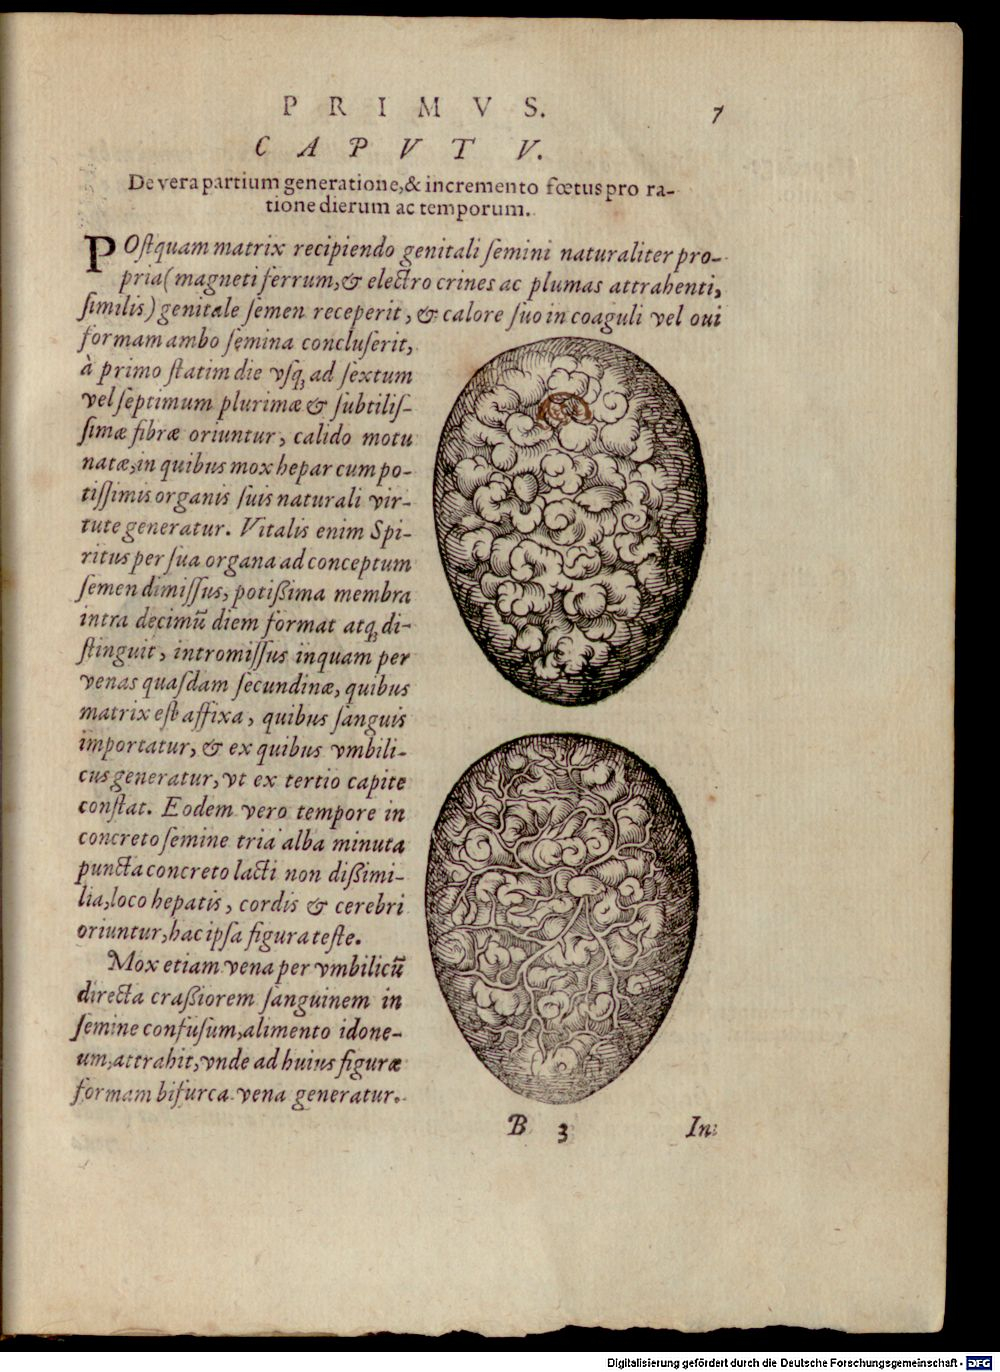 PRIMVS. 7
CAPVT V.
De vera partium generatione, & incremento fœtus pro ra-
tione dierum ac temporum.
POſtquam matrix recipiendo genitali ſemini naturaliter pro-
pria (magneti ferrum, & electro crines ac plumas attrahenti,
ſimilis) genitale ſemen receperit, & calore ſuo in coaguli vel oui
formam ambo ſemina concluſerit,
à primo ſtatim die vſq; ad ſextum
vel ſeptimum plurimæ & ſubtiliſ-
ſimæ fibræ oriuntur, calido motu
natæ, in quibus mox hepar cum po-
tiſſimis organis ſuis naturali vir-
tute generatur. Vitalis enim Spi-
ritus per ſua organa ad conceptum
ſemen dimiſſus, potißima membra
intra decimũ diem format atq; di-
ſtinguit, intromiſſus inquam per
venas quaſdam ſecundinæ, quibus
matrix eſt affixa, quibus ſanguis
importatur, & ex quibus vmbili-
cus generatur, vt ex tertio capite
conſtat. Eodem vero tempore in
concreto ſemine tria alba minuta
puncta concreto lacti non dißimi-
lia, loco hepatis, cordis & cerebri
oriuntur, hac ipſa figura teſte.
Mox etiam vena per vmbilicũ
directa craßiorem ſanguinem in
ſemine confuſum, alimento idone-
um, attrahit, vnde ad huius figuræ
formam bifurca vena generatur.
B 3 In:
Digitalisierung gefördert durch die Deutsche Forschungsgemeinschaft - DFG